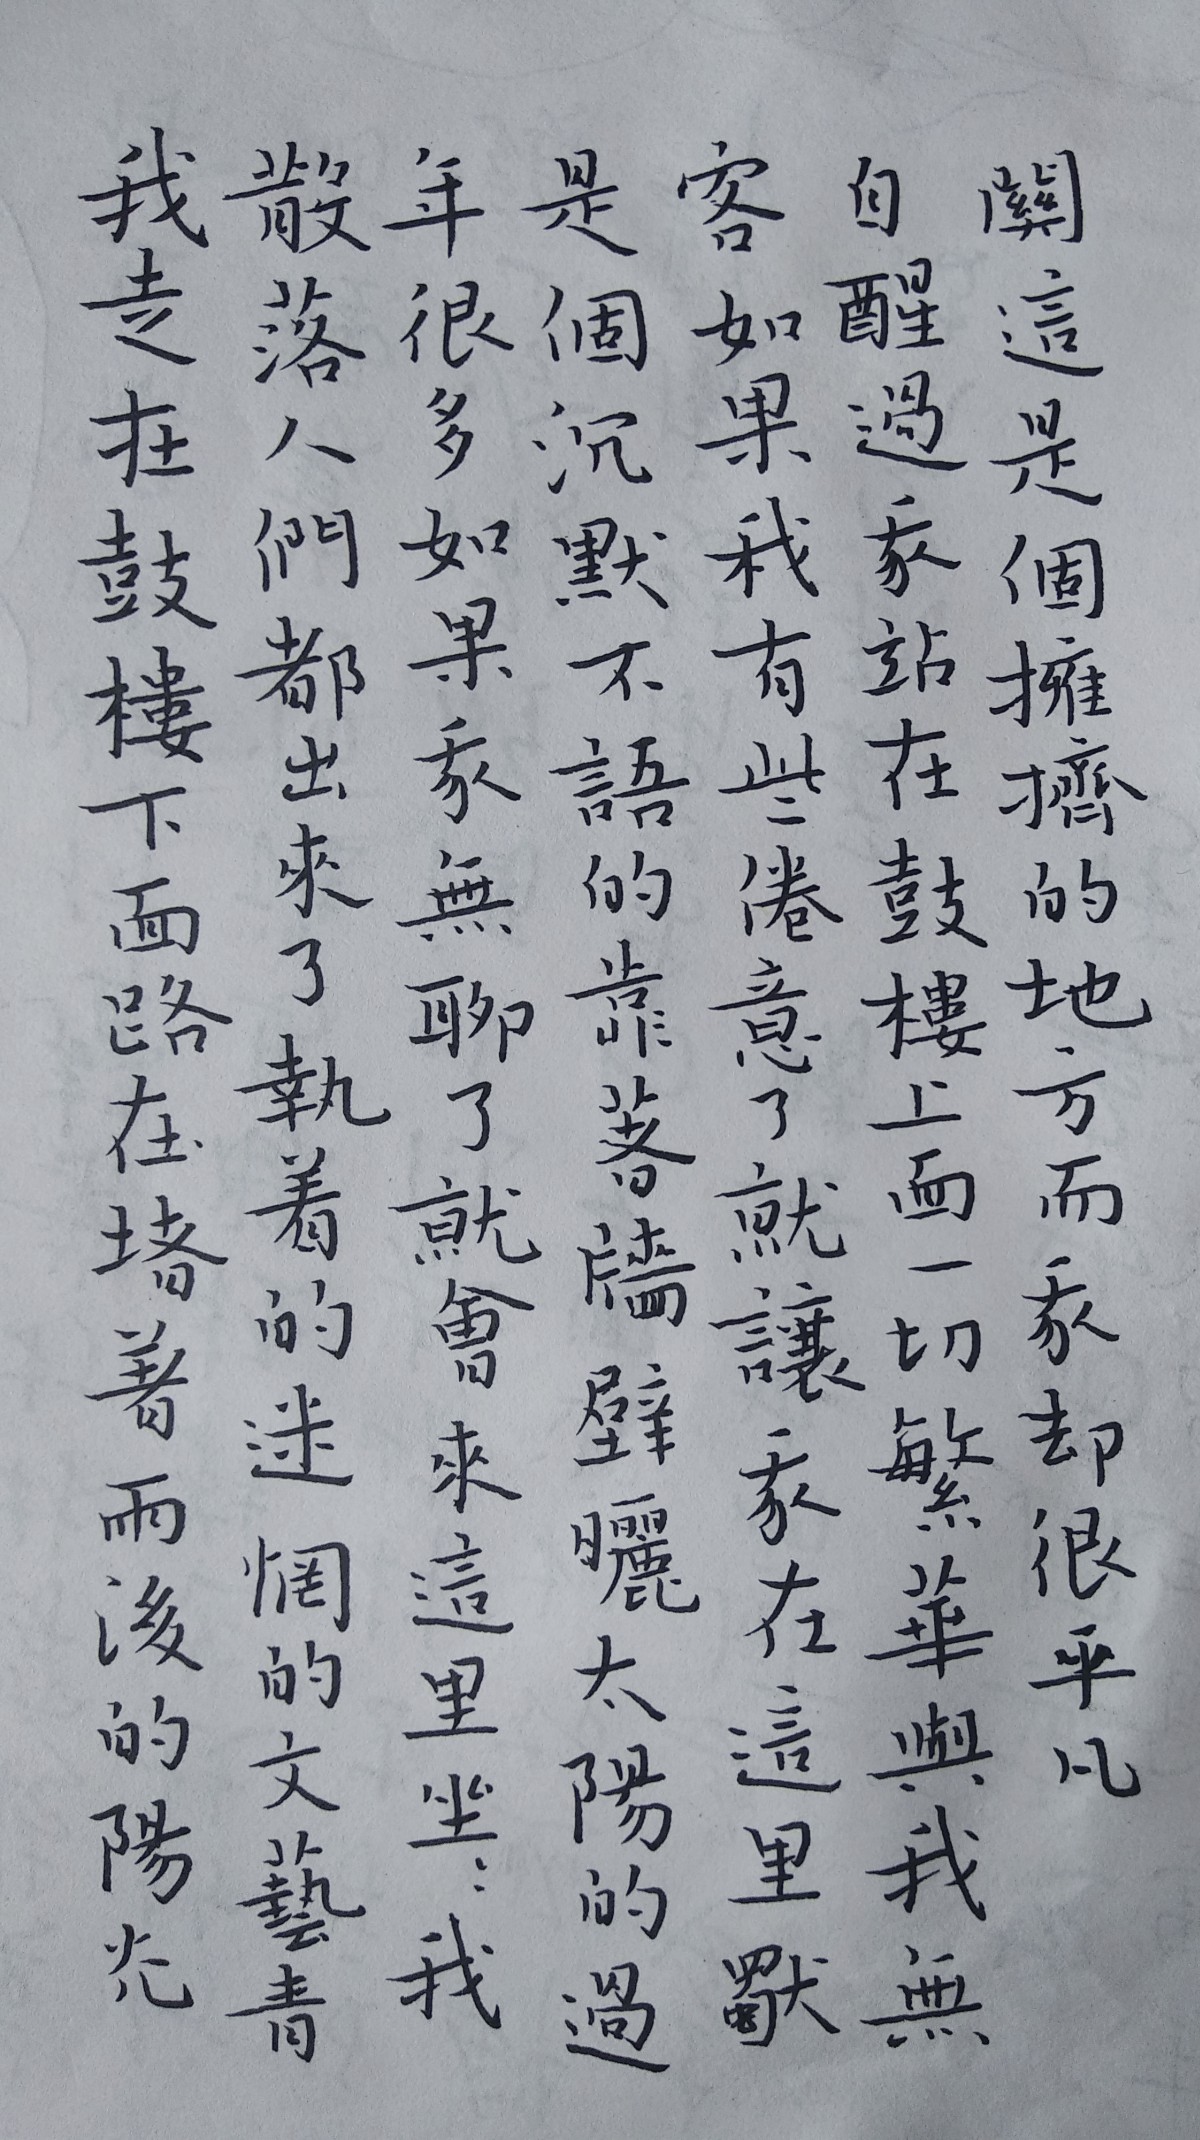 我走在鼓樓下面路在堵著雨後的陽光
散落人們都出來了執着的迷惘的文藝青
年很多如果我無聊了就會來這里坐：我
是個沉默不語的靠著牆壁曬太陽的過
客如果我有些倦意了就讓我在這里獨
自醒過我站在鼓樓上面一切繁華與我無
關這是個擁擠的地方而我却很平凡